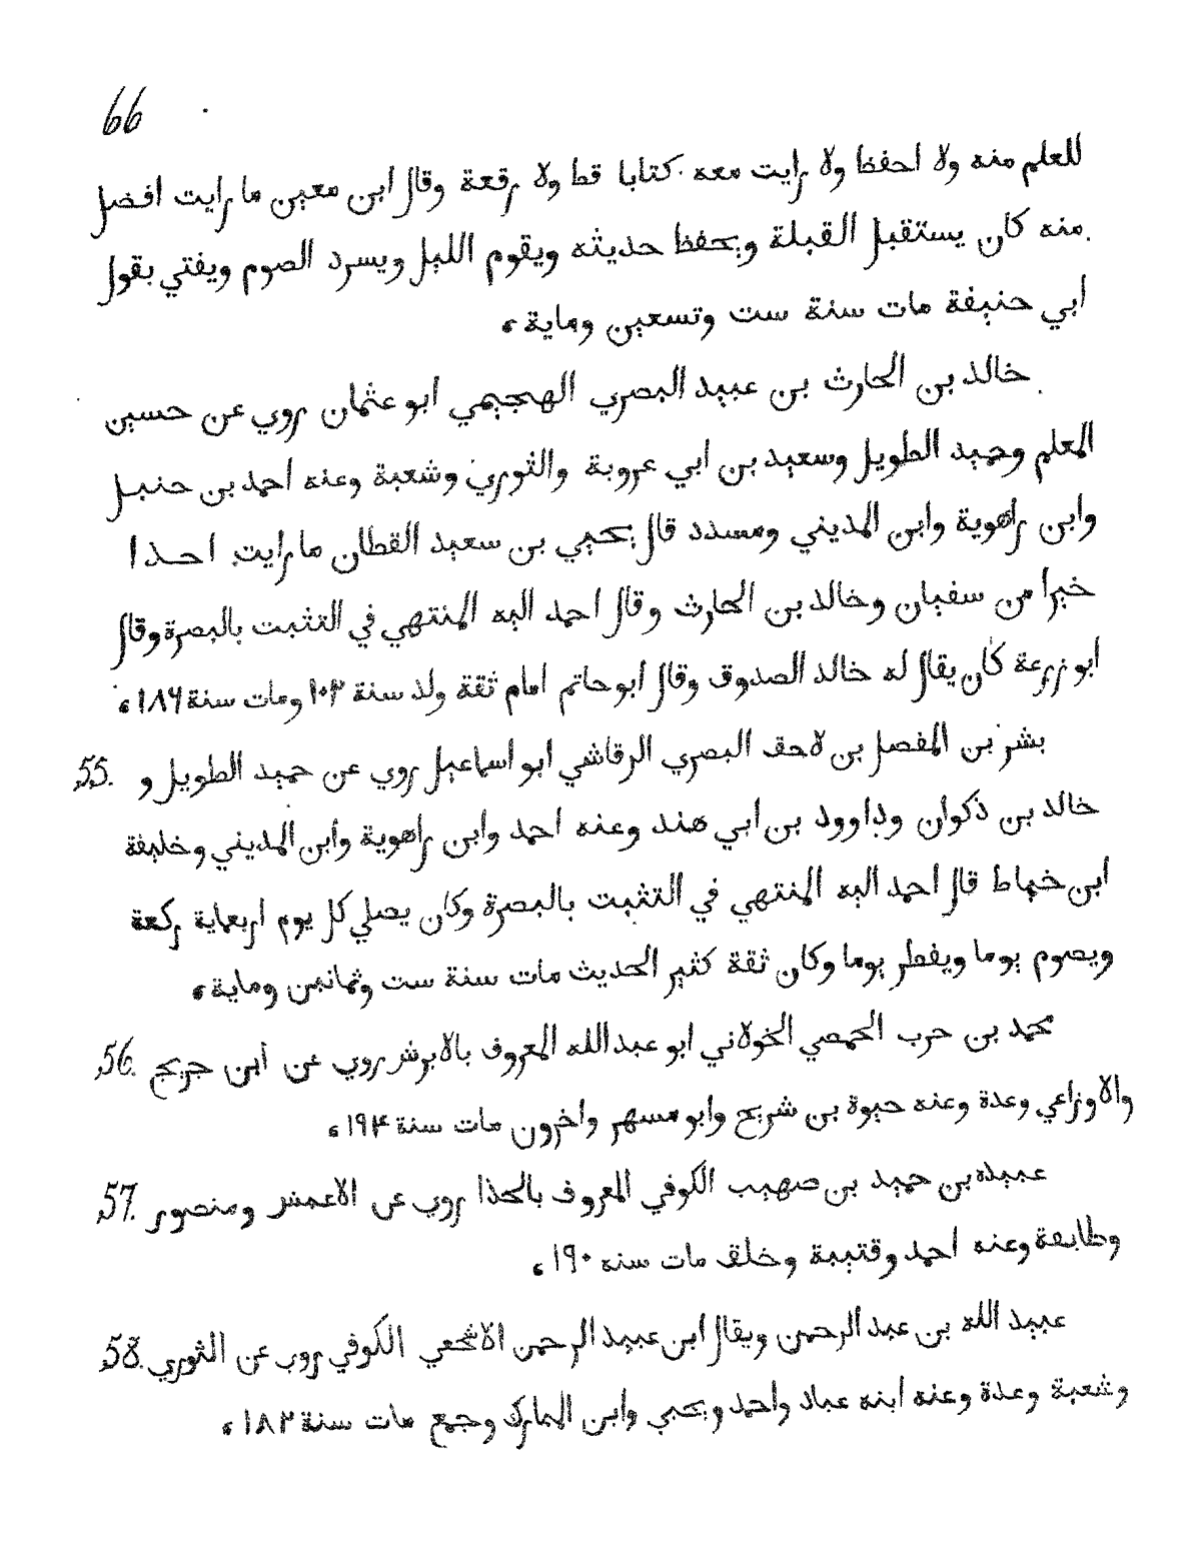 66
للعلم منه ولا احفظ ولا رايت معه كتابا قط ولا رقعة وقال ابن معين ما رايت افضل
منه كان يستقبل القبلة ويحفظ حديثه ويقوم الليل ويسرد الصوم ويفتي بقول
ابي حنيفة مات سنة ست وتسعين وماية،
خالد بن الحارث بن عبيد البصري الهجيمي ابو عثمان روي عن حسين
المعلم وحميد الطويل وسعيد بن ابي عروبة والثوري وشعبة وعنه احمد بن حنبل
وابن راهوية وابن المديني ومسدد قال يحيي بن سعيد القطان ما رايت احدا
خيرا من سفيان وخالد بن الحارث وقال احمد اليه المنتهي في التثبت بالبصرة وقال
ابو زرعة كان يقال له خالد الصدوق وقال ابو حاتم امام ثقة ولد سنة ١٠٢ ومات سنة ١٨٦،
55. بشر بن المفصل بن لاحق البصري الرقاشي ابو اسماعيل روي عن حميد الطويل و
خالد بن ذكوان وداوود بن ابي هند وعنه احمد وابن راهوية وأبن المديني وخليفة
ابن خياط قال احمد اليه المنتهي في التثبت بالبصرة وكان يصلي كل يوم اربعماية ركعة
ويصوم يوما ويفطر يوما وكان ثقة كثير الحديث مات سنة ست وثمانين وماية،
56. محمد بن حرب الحمصي الخولاني ابو عبد الله المعروف بالابرش روي عن أبن جريج
والاوزاعي وعدة وعنه حيوة بن شريح وابو مسهر واخرون مات سنة ١٩٤،
57. عبيده بن حميد بن صهيب الكوفي المعروف بالحذا روي عن الاعمش ومنصور
وطايفة وعنه احمد وقتيبة وخلق مات سنه ١٩٠،
58. عبيد الله بن عبد الرحمن ويقال ابن عبيد الرحمن الاشجعي الكوفي روي عن الثوري
وشعبة وعدة وعنه ابنه عباد واحمد ويحيي وابن المبارك وجمع مات سنة ١٨٢،